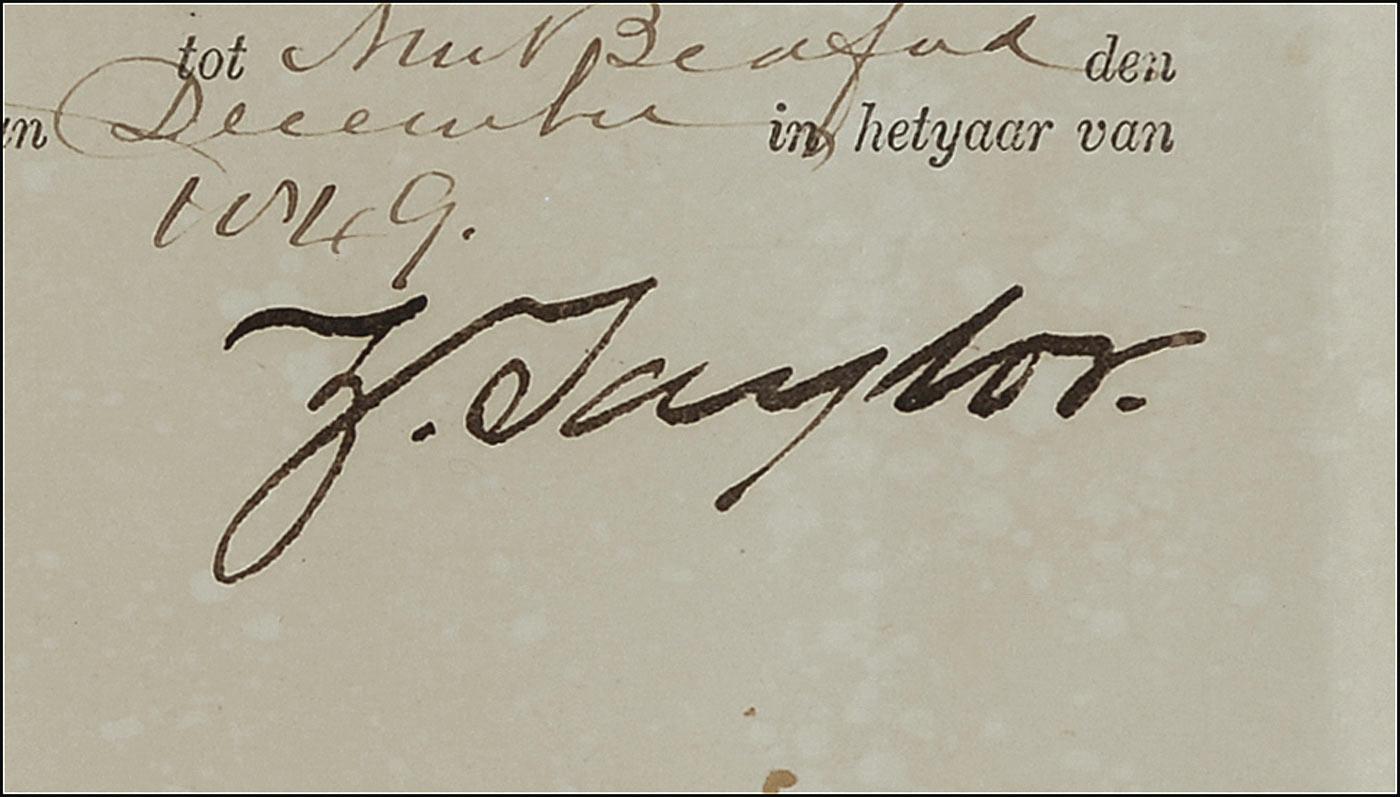 tot New Bedford den
an December in hetyaar van
1849.
Z. Taylor.